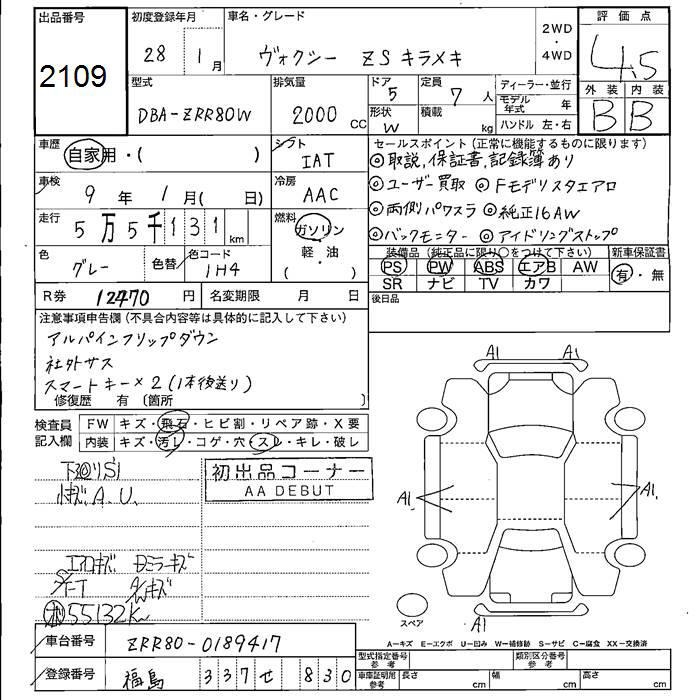 出品番号
2109
初度登録年月
28 1月
車名・グレード
ヴォクシー ZS キラメキ
2WD
・
4WD
評価点
4.5
外装 内装
B B
型式
DBA-ZRR80W
排気量
2000 CC
ドア
5
形状
W
定員
7 人
積載
kg
ディーラー・並行
モデル年式 年
ハンドル 左・右
車歴
自家用・( )
シフト
IAT
セールスポイント(正常に機能するものに限ります)
◎取説,保証書,記録簿あり
◎ユーザー買取 ◎Fモデリスタエアロ
◎両側パワスラ ◎純正16AW
◎バックモニター ◎アイドリングストップ
車検
9年 1月( 日)
冷房
AAC
走行
5万5千131km
燃料
ガソリン
軽・油
( )
色
グレー
色替
色コード
1H4
装備品(純正品に限り○をつけて下さい)
PS PW ABS エアB AW
SR ナビ TV カワ
新車保証書
有・無
R券 12470円
名変期限 月 日
後日品
注意事項申告欄(不具合内容等は具体的に記入して下さい)
アルパインフリップダウン
社外サス
スマートキー×2(1本後送り)
修復歴 有〔箇所 〕
検査員記入欄
FW キズ・飛石・ヒビ割・リペア跡・X要
内装 キズ・汚レ・コゲ・穴・スレ・キレ・破レ
下廻りS1
小キズA.U.
初出品コーナー
AA DEBUT
エアロキズ Dミラーキズ
55132K
A1
A1
A1.
A1.
A1
スペア
A─キズ E─エクボ U─凹み W─補修跡 S─サビ C─腐食 XX─交換済
車台番号
ZRR80-0189417
登録番号
福島 337 せ 830
型式指定番号 参考
類別区分番号 参考
車庫証明用 参考
長さ cm
幅 cm
高さ cm